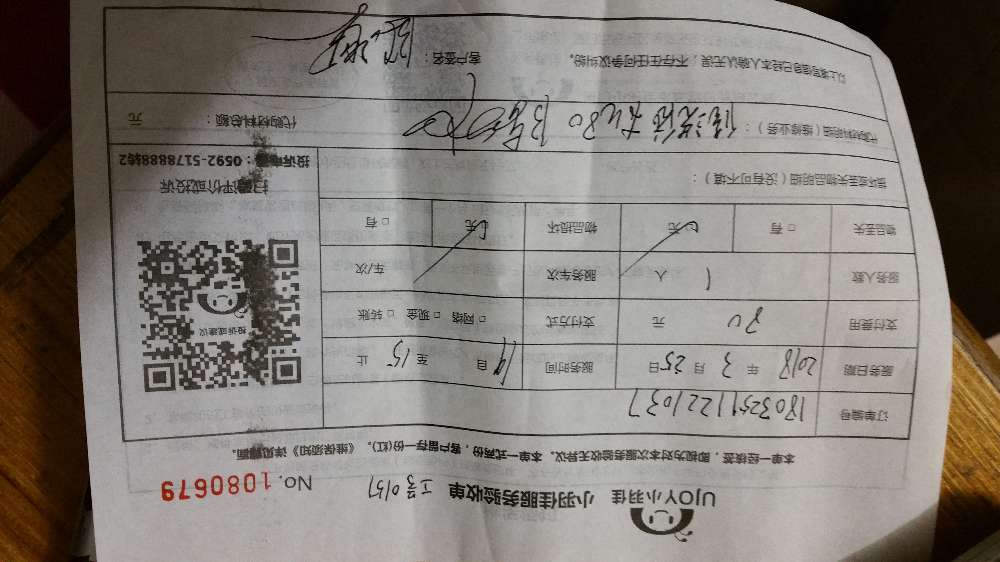 UJOY小羽佳 小羽佳服务验收单 工号0157 No. 1080679
本单一经核签，即视为对本次服务验收无异议。本单一式两份，客户留存一份(红)。《维保须知》详见背面。
订单编号 18032511221037
服务日期 2018 年 3 月 25 日 服务时间 自 14 至 15 止
支付费用 20 元 支付方式 □ 网络 □ 现金 □ 转账
服务人数 1 人 服务车次 车/次
物品丢失 □ 有 □ 无 物品损坏 □ 无 □ 有
损坏或丢失物品明细（没有可不填）：
代购材料明细（维修业务）： 代购材料总额： 元
以上填写信息已经本人确认无误，不存在任何争议纠纷。 客户签名：
投诉或建议
扫码评价或投诉
投诉电话：0592-5178888转2